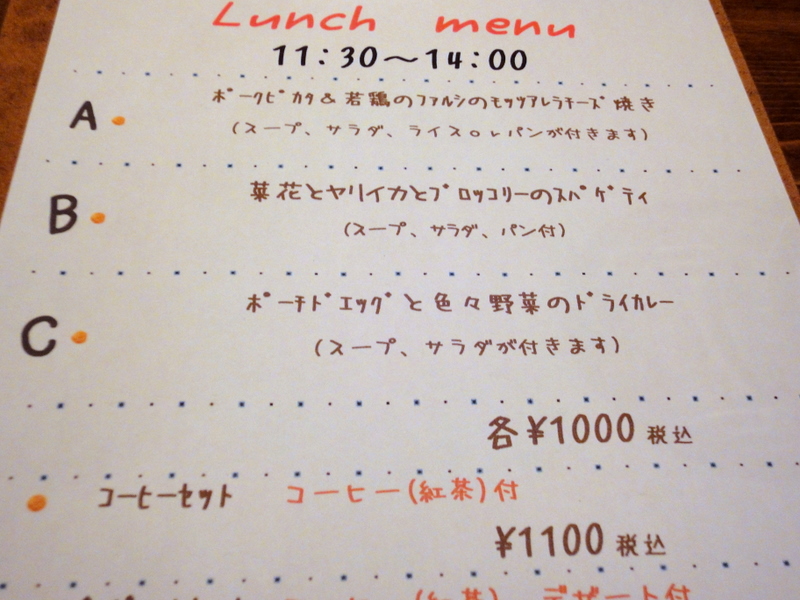 Lunch menu
11:30～14:00
A ﾎﾟｰｸﾋﾟｶﾀ&若鶏のﾌｧﾙｼのﾓｯﾂｱﾚﾗﾁｰｽﾞ焼き
(スープ、サラダ、ライスorパンが付きます)
B 菜花とヤリイカとﾌﾞﾛｯｺﾘｰのｽﾊﾟｹﾞﾃｨ
(スープ、サラダ、パン付)
C ﾎﾟｰﾁﾄﾞｴｯｸﾞと色々野菜のﾄﾞﾗｲｶﾚｰ
(スープ、サラダが付きます)
各¥1000 税込
コーヒーセット コーヒー(紅茶)付
¥1100 税込
(紅茶) デザート付